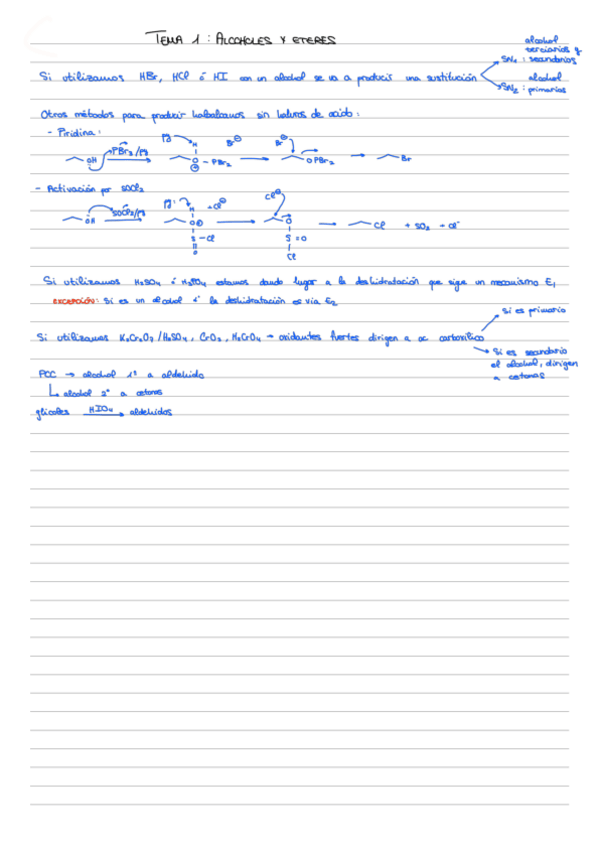 TEMA 1: ALCOHOLES Y ETERES
alcohol
terciarios y
SN1: secundarios
Si utilizamos HBr, HCl ó HI con un alcohol se va a producir una sustitución
alcohol
SN2: primarios
Otros métodos para producir haloalcanos sin haluros de acido:
- Piridina:
OH PBr3/py
py: H Br⊖
O⊕ - PBr2
Br⊖ OPBr2
Br
- Activación por SOCl2
OH SOCl2/py
py: H + Cl⊖
O⊕
S - Cl
O
Cl⊖
O
S = O
Cl
Cl + SO2 + Cl⁻
Si utilizamos H2SO4 ó H3PO4 estamos dando lugar a la deshidratación que sigue un mecanismo E1
EXCEPCIÓN: Si es un alcohol 1º la deshidratación es vía E2
Si es primario
Si utilizamos K2Cr2O7/H2SO4, CrO3, H2CrO4 → oxidantes fuertes dirigen a ac carboxílico
Si es secundario
el alcohol, dirigen
a cetonas
PCC → alcohol 1º a aldehído
alcohol 2º a cetonas
glicoles HIO4 → aldehídos